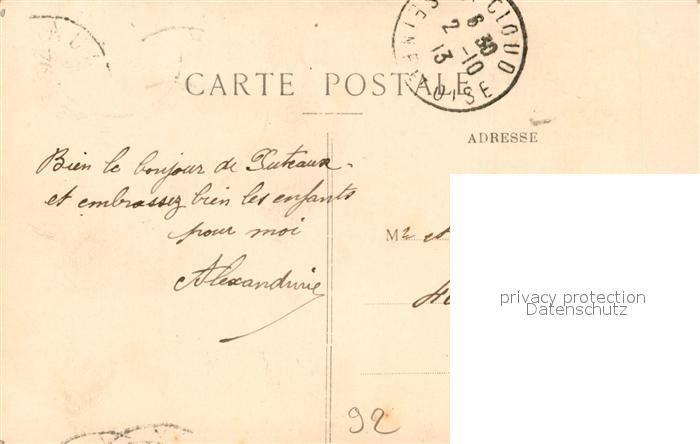 ST CLOUD
6 30
2-10
13
SEINE ET OISE
CARTE POSTALE
ADRESSE
Bien le bonjour de Puteaux.
et embrassez bien les enfants
pour moi
Alexandrine
Mr et
privacy protection
Datenschutz
92